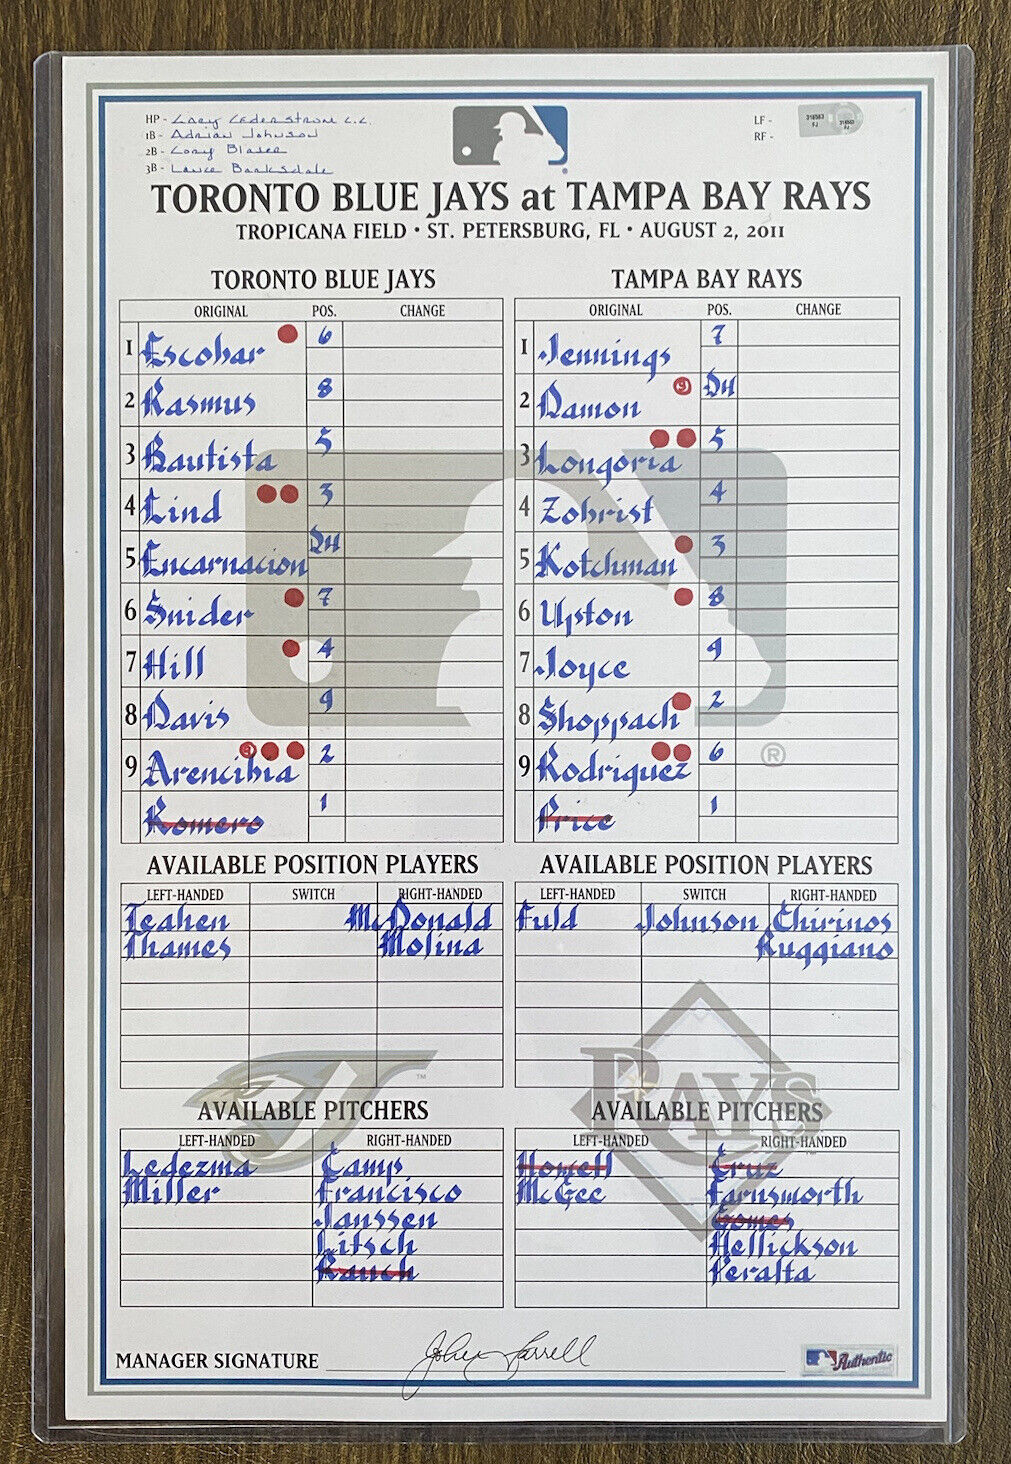 HP - Gary Cederstrom c.c.
1B - Adrian Johnson
2B - Cory Blaser
3B - Lance Barksdale
LF -
RF -
318583
FJ
318583
FJ
TORONTO BLUE JAYS at TAMPA BAY RAYS
TROPICANA FIELD • ST. PETERSBURG, FL • AUGUST 2, 2011
TORONTO BLUE JAYS
ORIGINAL POS. CHANGE
1 Escobar 6
2 Rasmus 8
3 Bautista 5
4 Lind 3
5 Encarnacion DH
6 Snider 7
7 Hill 4
8 Davis 9
9 Arencibia 2
Romero 1
TAMPA BAY RAYS
ORIGINAL POS. CHANGE
1 Jennings 7
2 Damon 9 DH
3 Longoria 5
4 Zobrist 4
5 Kotchman 3
6 Upton 8
7 Joyce 9
8 Shoppach 2
9 Rodriguez 6
Price 1
®
AVAILABLE POSITION PLAYERS
LEFT-HANDED SWITCH RIGHT-HANDED
Teahen McDonald
Thames Molina
AVAILABLE POSITION PLAYERS
LEFT-HANDED SWITCH RIGHT-HANDED
Fuld Johnson Chirinos
Ruggiano
RAYS
AVAILABLE PITCHERS
LEFT-HANDED RIGHT-HANDED
Ledezma Camp
Miller Francisco
Janssen
Litsch
Rauch
AVAILABLE PITCHERS
LEFT-HANDED RIGHT-HANDED
Howell Cruz
McGee Farnsworth
Gomes
Hellickson
Peralta
MANAGER SIGNATURE John Farrell
Authentic